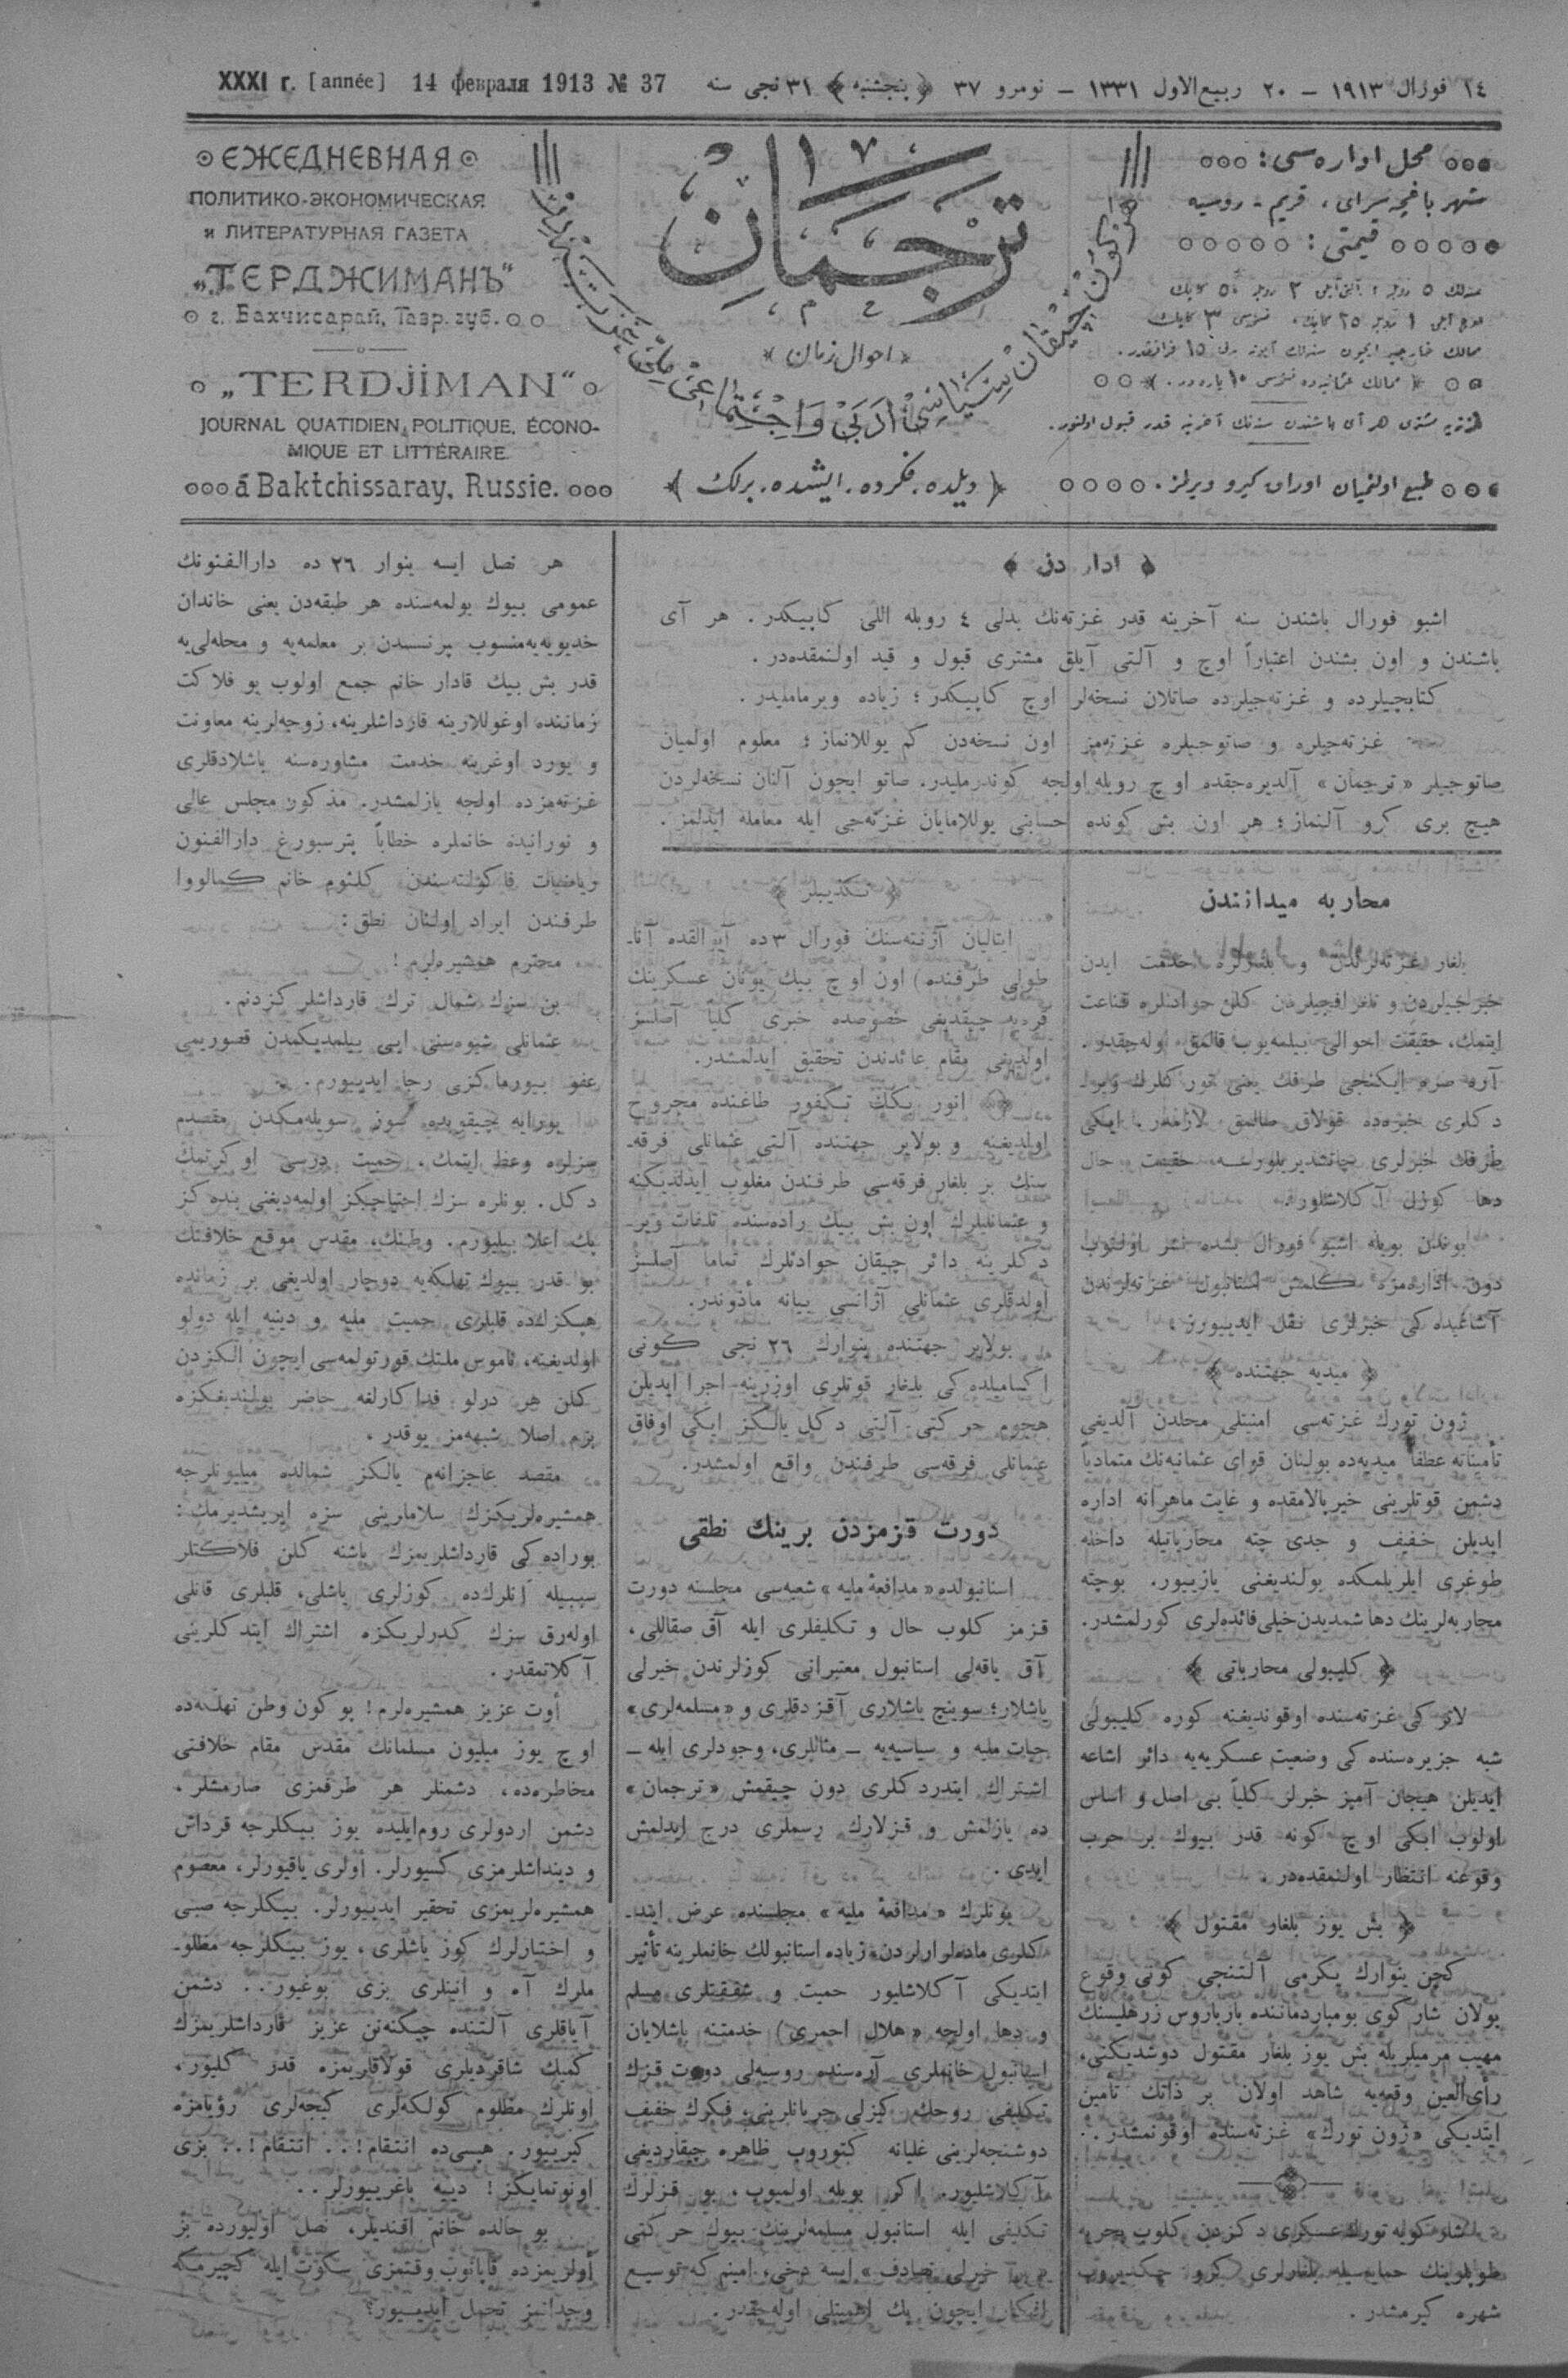 XXXI г. [année] 14 февраля 1913 № 37
١٤ فورال ١٩١٣ – ٢٠ ربيع الاول ١٣٣١ – نومرو ٣٧ ﴿پنجشنبه﴾ ٣١ نجی سنه
ЕЖЕДНЕВНАЯ
ПОЛИТИКО-ЭКОНОМИЧЕСКАЯ
и ЛИТЕРАТУРНАЯ ГАЗЕТА
„ТЕРДЖИМАНЪ“
г. Бахчисарай, Тавр. губ.
„TERDJİMAN“
JOURNAL QUATIDIEN, POLITIQUE, ÉCONO-
MIQUE ET LITTÉRAIRE
á Baktchissaray, Russie.
ترجمان
﴿احوال زمان﴾
هر كون چیقان سیاسی، ادبی و اجتماعی ملی غزته
﴿ دیلده، فكرده، ایشده، برلك ﴾
محل اداره‌سی:
شهر باغچه‌سرای، قریم - روسیه
قیمتی:
طبع اولنمیان اوراق كیرو ویرلمز.
﴿ اداره‌دن ﴾
اشبو فورال باشندن سنه آخرینه قدر غزته‌نك بدلی ٤ روبله اللی كاپیكدر. هر آی
باشندن و اون بشندن اعتباراً اوچ و آلتی آیلق مشتری قبول و قید اولنمقده‌در.
كتابچیلرده و غزته‌جیلرده صاتلان نسخه‌لر اوچ كاپیكدر؛ زیاده ویرماملیدر.
غزته‌جیلره و صاتوجیلره غزته‌مز اون نسخه‌دن كم یوللانماز؛ معلوم اولمیان
صاتوجیلر «ترجمان» آلدیره‌جقده اوچ روبله اولجه كوندرملیدر. صاتو ایچون آلنان نسخه‌لردن
هیچ بری كرو آلنماز؛ هر اون بش كونده حسابنی یوللامایان غزته‌جی ایله معامله ایدلمز.
محاربه میدانندن
بلغار غزته‌لرندن و بلغارلره خدمت ایدن
خبرجیلردن و تلغرافچیلردن كلن حوادثلره قناعت
ایتمك، حقیقت احوالی بیلمه‌یوب قالمق اوله‌جقدر.
آره صره ایكنجی طرفك یعنی توركلرك ویر-
دكلری خبره‌ده قولاق صالمق لازمدر. ایكی
طرفك خبرلری چاتشدیریلورسه، حقیقت حال
دها كوزل آكلاشلور.
بوندن بویله اشبو فورال بشده نشر اولنوب
دون اداره‌مزه كلمش استانبول غزته‌لرندن
آشاغیده‌كی خبرلری نقل ایدییورز.
﴿ میدیه جهتنده ﴾
ژون تورك غزته‌سی امنیتلی محلدن آلدیغی
تأمیناته عطفاً میدیه‌ده بولنان قوای عثمانیه‌نك متمادیاً
دشمن قوتلرینی خیرپالامقده و غایت ماهرانه اداره
ایدیلن خفیف و جدی چته محارباتیله داخله
طوغری ایلریلمكده بولندیغنی یازییور. بوچته
محاربه‌لرینك دها شمدیدن خیلی فائده‌لری كورلمشدر.
﴿ كلیبولی محارباتی ﴾
لاتركی غزته‌سنده اوقوندیغنه كوره كلیبولی
شبه جزیره‌سنده كی وضعیت عسكریه‌یه دائر اشاعه
ایدیلن هیجان آمیز خبرلر كلیاً بی اصل و اساس
اولوب ایكی اوچ كونه قدر بیوك بر حرب
وقوعنه انتظار اولنمقده‌در.
﴿ بش یوز بلغار مقتول ﴾
كچن ینوارك یكرمی آلتنجی كونی وقوع
بولان شاركوی بومباردماننده بارباروس زرهلیسنك
مهیب مرمیلریله بش یوز بلغار مقتول دوشدیكنی،
رأی‌العین وقعه‌یه شاهد اولان بر ذاتك تأمین
ایتدیكی «ژون تورك» غزته‌سنده اوقونمشدر.
شاركویه تورك عسكری دكزدن كلوب بحریه
طوپلرینك حمایه‌سیله بلغارلری كرو چكدیروب
شهره كیرمشدر.
﴿ تكذیبلر ﴾
ایتالیان آژنته‌سنك فورال ٣ ده آیوالقده آنا-
طولی طرفنده) اون اوچ بیك یونان عسكرینك
قره‌یه چیقدیغی خصوصده خبری كلیا آصلسز
اولدیغی مقام عائدندن تحقیق ایدلمشدر.
انور بكك تكفور طاغنده مجروح
اولدیغنه و بولایر جهتنده آلتی عثمانلی فرقه-
سنك بر بلغار فرقه‌سی طرفندن مغلوب ایدلدیكنه
و عثمانلیلرك اون بش بیك راده‌سنده تلفات ویر-
دكلرینه دائر چیقان حوادثلرك تماما آصلسز
اولدقلری عثمانلی آژانسی بیانه مأذوندر.
بولایر جهتنده ینوارك ٢٦ نجی كونی
اكسامیلده‌كی بلغار قوتلری اوزرینه اجرا ایدیلن
هجوم حركتی آلتی دكل یالكز ایكی اوفاق
عثمانلی فرقه‌سی طرفندن واقع اولمشدر.
دورت قزمزدن برینك نطقی
استانبولده «مدافعهٔ ملیه» شعبه‌سی مجلسنه دورت
قزمز كلوب حال و تكلیفلری ایله آق صقاللی،
آق یاقه‌لی استانبول معتبرانی كوزلرندن خبرلی
یاشلار؛ سوینج یاشلاری آقزدقلری و «مسلمه‌لری»
حیات ملیه و سیاسیه‌یه – مثاللری، وجودلری ایله –
اشتراك ایتدردكلری دون چیقمش «ترجمان»
ده یازلمش و قزلارك رسملری درج ایدلمش
ایدی.
بونلرك «مدافعهٔ ملیه» مجلسنده عرض ایتد-
كلری ماده‌لر ارلردن زیاده استانبولك خانملرینه تأثیر
ایتدیكی آكلاشلیور حمیت و شفقتلری مسلم
و دها اولجه «هلال احمری» خدمتنه باشلایان
استانبول خانملری آره‌سنده روسیه‌لی دورت قزك
تكلیفی روحك كیزلی جریانلرینی، فكرك خفیف
دوشنجه‌لرینی غلیانه كتوروب ظاهره چیقاردیغی
آكلاشلیور. اكر بویله اولمیوب، بو قزلرك
تكلیفی ایله استانبول مسلمه‌لرینك بیوك حركتی
خیرلی تصادف» ایسه دخی، امینم كه توسیع
افكار ایچون پك اهمیتلی اوله‌جقدر.
هر نصل ایسه ینوار ٢٦ ده دارالفنونك
عمومی بیوك بولمه‌سنده هر طبقه‌دن یعنی خاندان
خدیویه‌یه منسوب پرنسسدن بر معلمه‌یه و محله‌لی‌یه
قدر بش بیك قادار خانم جمع اولوب بو فلاكت
زماننده اوغوللارینه قارداشلرینه، زوجه‌لرینه معاونت
و یورد اوغرینه خدمت مشاوره‌سنه باشلادقلری
غزته‌مزده اولجه یازلمشدر. مذكور مجلس عالی
و نورانیده خانملره خطاباً پترسبورغ دارالفنون
ریاضیات فاكولته‌سندن كلثوم خانم كمالووا
طرفندن ایراد اولنان نطق:
محترم همشیره‌لرم!
بن سزك شمال ترك قارداشلر كزدنم.
عثمانلی شیوه‌سنی ایی بیلمدیكمدن قصوریمی
عفو بیورماكزی رجا ایدییورم.
بورایه چیقوبده سوز سویله‌مكدن مقصدم
سزلره وعظ ایتمك، حمیت درسی اوكرتمك
دكل. بونلره سزك احتیاجكز اولمه‌دیغنی بنده‌كز
پك اعلا بیلیورم. وطنك، مقدس موقع خلافتك
بو قدر بیوك تهلكه‌یه دوچار اولدیغی بر زمانده
هپكزك‌ده قلبلری حمیت ملیه و دینیه ایله دولو
اولدیغنه، ناموس ملتك قورتولمه‌سی ایچون الكزدن
كلن هر درلو فداكارلغه حاضر بولندیغكزه
بزم اصلا شبهه‌مز یوقدر.
مقصد عاجزانه‌م یالكز شمالده میلیونلرجه
همشیره‌لریكزك سلاملرینی سزه ایریشدیرمك:
بوراده‌كی قارداشلریمزك باشنه كلن فلاكتلر
سببیله آنلرك‌ده كوزلری یاشلی، قلبلری قانلی
اوله‌رق سزك كدرلریكزه اشتراك ایتدكلرینی
آكلاتمقدر.
أوت عزیز همشیره‌لرم! بوكون وطن تهلكه‌ده
اوچ یوز میلیون مسلمانك مقدس مقام خلافتی
مخاطره‌ده، دشمنلر هر طرفمزی صارمشلر،
دشمن اردولری روم‌ایلیده یوز بیكلرجه قرداش
و دینداشلرمزی كسیورلر. أولری یاقیورلر، معصوم
همشیره‌لریمزی تحقیر ایدییورلر. بیكلرجه صبی
و اختیارلرك كوز یاشلری، یوز بیكلرجه مظلو-
ملرك آه و انینلری بزی بوغیور.. دشمن
آیاقلری آلتنده چیكنه‌نن عزیز قارداشلریمزك
كمیك شاقردیلری قولاقلریمزه قدر كلیور،
اونلرك مظلوم كولكه‌لری كیجه‌لری رؤیامزه
كیرییور. هپسی‌ده انتقام!.. انتقام!.. بزی
اونوتمایكز! دییه باغرییورلر..
بو حالده خانم افندیلر، نصل اولیورده بز
أولریمزده قاپانوب وقتمزی سكوت ایله كچیرمكه
وجدانمز تحمل ایدییور؟